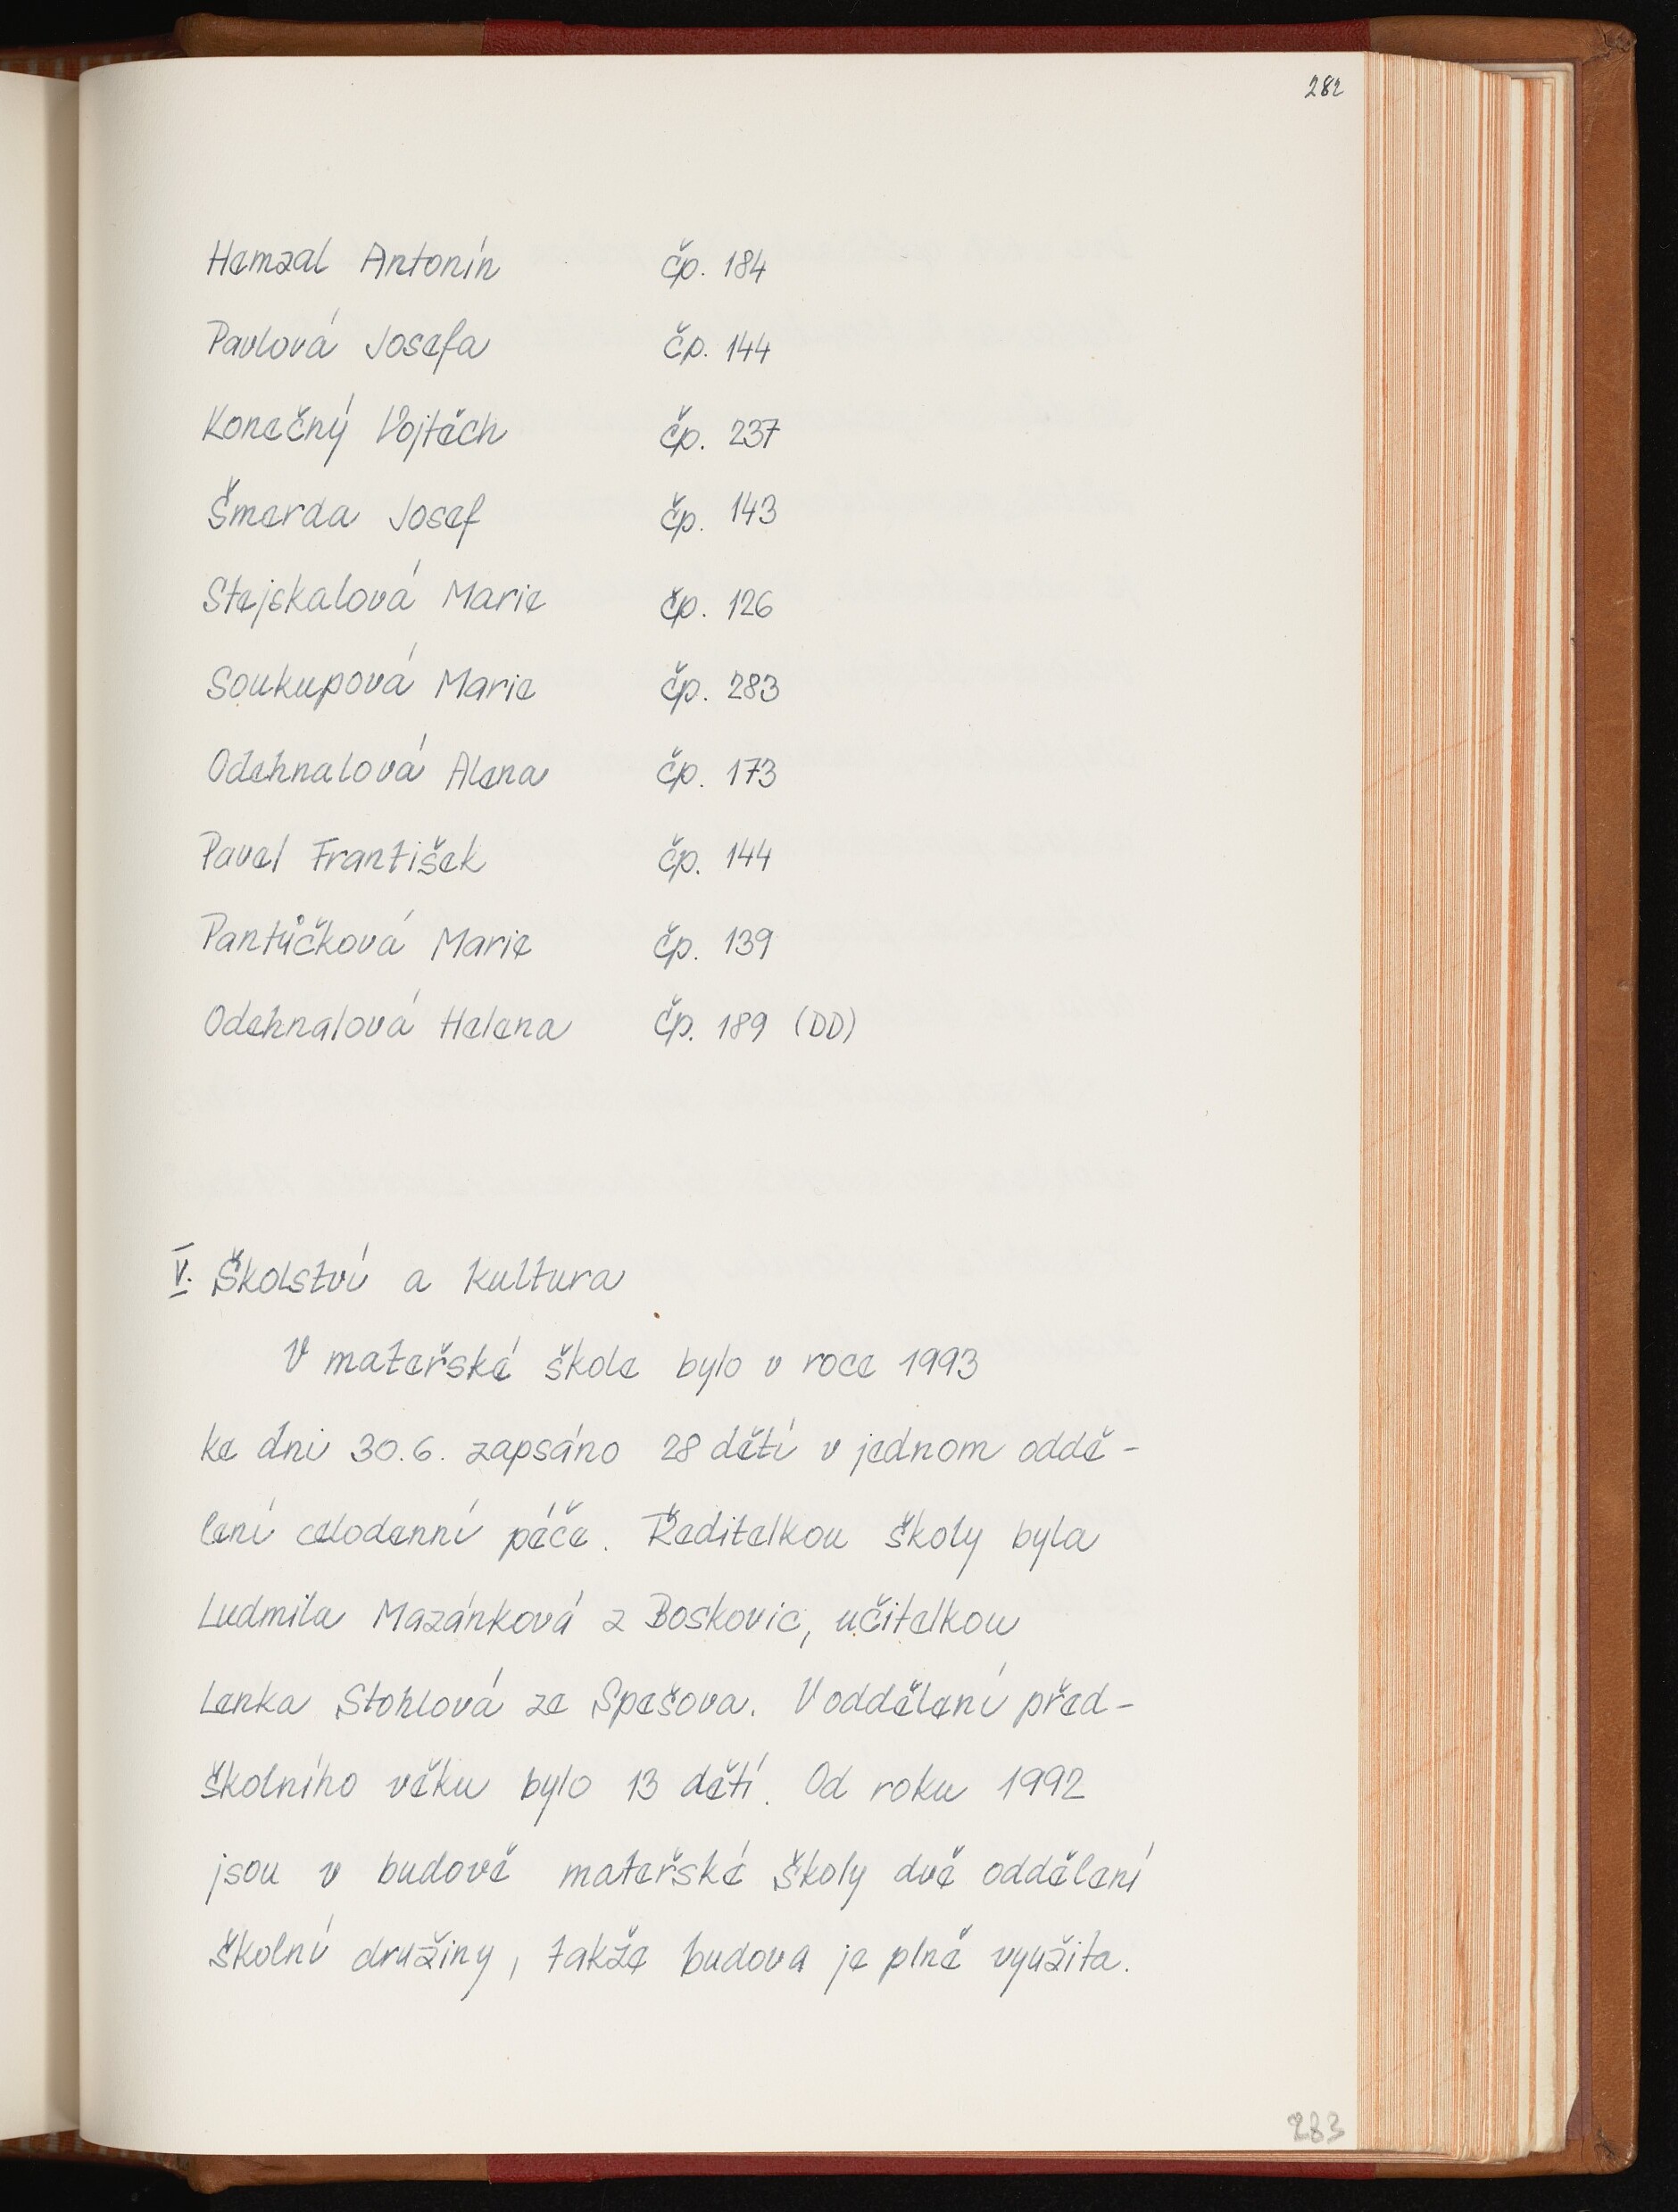 282
Hemzal Antonín čp. 184
Pavlová Josefa čp. 144
Konečný Vojtěch čp. 237
Šmerda Josef čp. 143
Stejskalová Marie čp. 126
Soukupová Marie čp. 283
Odehnalová Alena čp. 173
Pavel František čp. 144
Pantůčková Marie čp. 139
Odehnalová Helena čp. 189 (DD)
V. Školství a kultura
V mateřské škole bylo v roce 1993
ke dni 30.6. zapsáno 28 dětí v jednom oddě-
lení celodenní péče. Ředitelkou školy byla
Ludmila Mazánková z Boskovic, učitelkou
Lenka Stohlová ze Spešova. V oddělení před-
školního věku bylo 13 dětí. Od roku 1992
jsou v budově mateřské školy dvě oddělení
školní družiny, takže budova je plně využita.
283